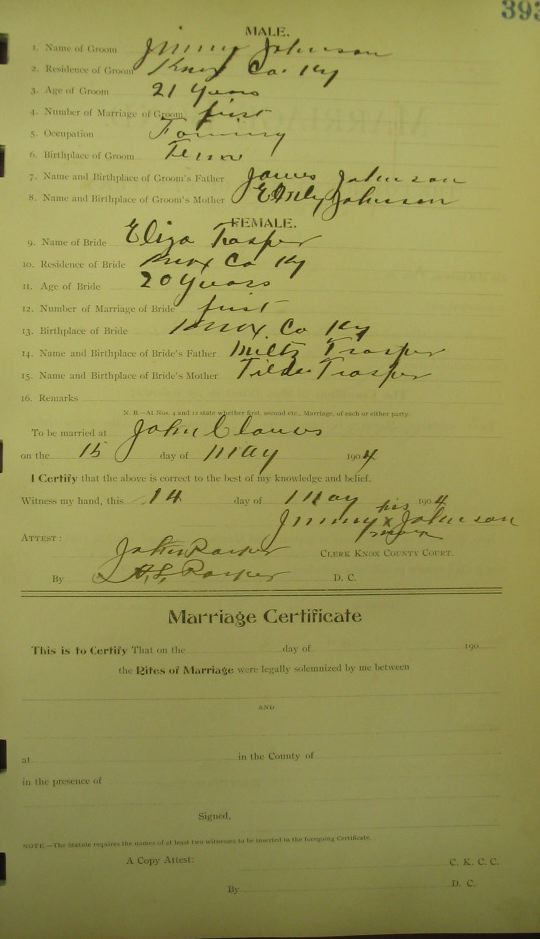 393
MALE.
1. Name of Groom Jimmy Johnson
2. Residence of Groom Knox Co. Ky
3. Age of Groom 21 years
4. Number of Marriage of Groom first
5. Occupation Farming
6. Birthplace of Groom Tenn
7. Name and Birthplace of Groom's Father James Johnson
8. Name and Birthplace of Groom's Mother Johnson
FEMALE.
9. Name of Bride Eliza Trosper
10. Residence of Bride Knox Co Ky
11. Age of Bride 20 years
12. Number of Marriage of Bride first
13. Birthplace of Bride Knox. Co Ky
14. Name and Birthplace of Bride's Father Trosper
15. Name and Birthplace of Bride's Mother Trosper
16. Remarks
N. B.—At Nos. 4 and 12 state whether first, second etc., Marriage, of each or either party.
To be married at John
on the 15 day of May 1904
I Certify that the above is correct to the best of my knowledge and belief.
Witness my hand, this 14 day of May 1904
his
Jimmy x Johnson
mark
ATTEST:
John
CLERK KNOX COUNTY COURT.
By D. C.
Marriage Certificate
This is to Certify That on the day of 190
the Rites of Marriage were legally solemnized by me between
AND
at in the County of
in the presence of
Signed,
NOTE.—The Statute requires the names of at least two witnesses to be inserted in the foregoing Certificate.
A Copy Attest: C. K. C. C.
By D. C.